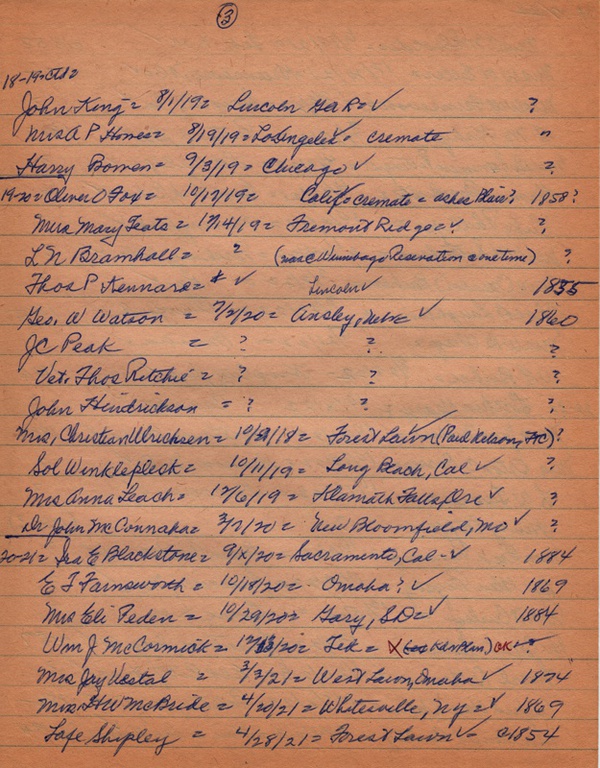 3
18-19 Ctd=
John King = 8/1/19 = Lincoln GAR = ✓ ?
Mrs A P Hones = 8/19/19 = Los Angeles ✓ = cremate "
Harry Bowen = 9/3/19 = Chicago ✓ ?
19-20 = Oliver O Fox = 10/12/19 = Calif = cremate = ashes Blair? 1858?
Mrs Mary Teats = 12/14/19 = Fremont Ridge = ✓ ?
L N Bramhall = ? (was @ Winnebago Reservation @ one time) ?
Thos P Kennard = * ✓ Lincoln ✓ 1855
Geo. W Watson = 7/2/20 = Ansley, Nebr ✓ 1860
JC Peak = ? ? ?
Vet. Thos Ritchie = ? ? ?
John Hindrickson = ? ? ?
Mrs, Christian Ulrichsen = 10/31/18 = Forest Lawn (Paul Nelson, FtC) ?
Sol Winklepleck = 10/11/19 = Long Beach, Cal ✓ ?
Mrs Anna Leach = 12/6/19 = Klamath Falls, Ore ✓ ?
Dr John McConnaha = 3/2/20 = New Bloomfield, MO ✓ ?
20-21 = Ira E Blackstone = 9/x/20 = Sacramento, Cal - ✓ 1884
E F Farnsworth = 10/18/20 = Omaha? ✓ 1869
Mrs Eli Peden = 10/29/20 = Gary, SD = ✓ 1884
Wm J. McCormick = 12/13/20 = Tek = X OK
Mrs Jay Vestal = 3/3/21 = West Lawn, Omaha ✓ 1874
Mrs. H W McBride = 4/20/21 = Whitesville, Ny = ✓ 1869
Lafe Shipley = 4/28/21 = Forest Lawn ✓ - c1854